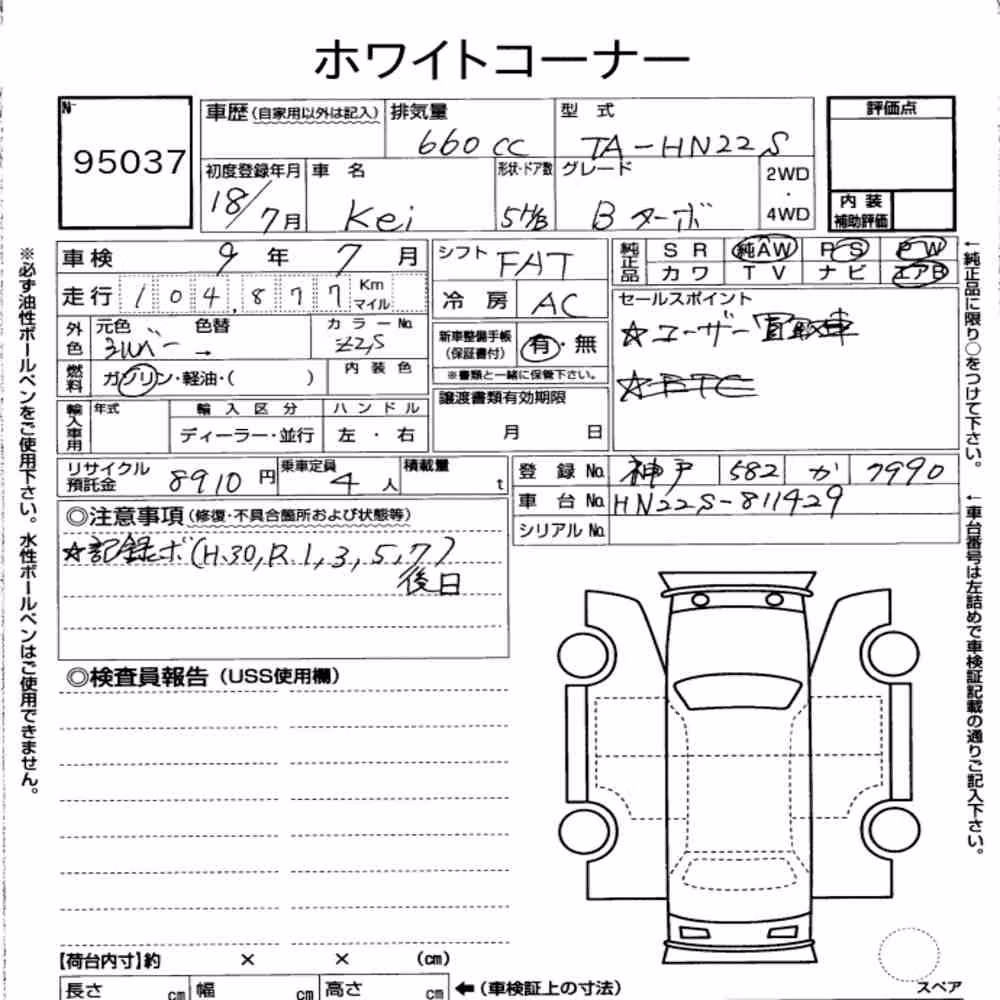 ホワイトコーナー
№ 95037
車歴(自家用以外は記入) 排気量 660cc 型式 TA-HN22S 評価点
初度登録年月 18/7月 車名 Kei 形状・ドア数 5H/B グレード Bターボ 2WD・4WD
内装補助評価
車検 9年 7月 シフト FAT 純正品 SR 純AW PS PW
カワ TV ナビ エアB
走行 104,877 Km マイル 冷房 AC
セールスポイント
☆ユーザー買取車
☆ETC
外色 元色 シルバー 色替 → カラーNo. Z2S
新車整備手帳(保証書付) 有・無
※書類と一緒に保管下さい。
燃料 ガソリン・軽油・( ) 内装色
輸入車用 年式 輸入区分 ハンドル
ディーラー・並行 左・右
譲渡書類有効期限
月 日
リサイクル預託金 8910円 乗車定員 4人 積載量 t
登録No. 神戸 582 か 7990
車台No. HN22S-811429
シリアルNo.
◎注意事項(修復・不具合箇所および状態等)
☆記録ボ(H.30,R.1,3,5,7)
後日
◎検査員報告(USS使用欄)
【荷台内寸】約 × × (cm)
長さ cm 幅 cm 高さ cm ←(車検証上の寸法)
スペア
※必ず油性ボールペンをご使用下さい。水性ボールペンはご使用できません。
←純正品に限り○をつけて下さい。
←車台番号は左詰めで車検証記載の通りご記入下さい。